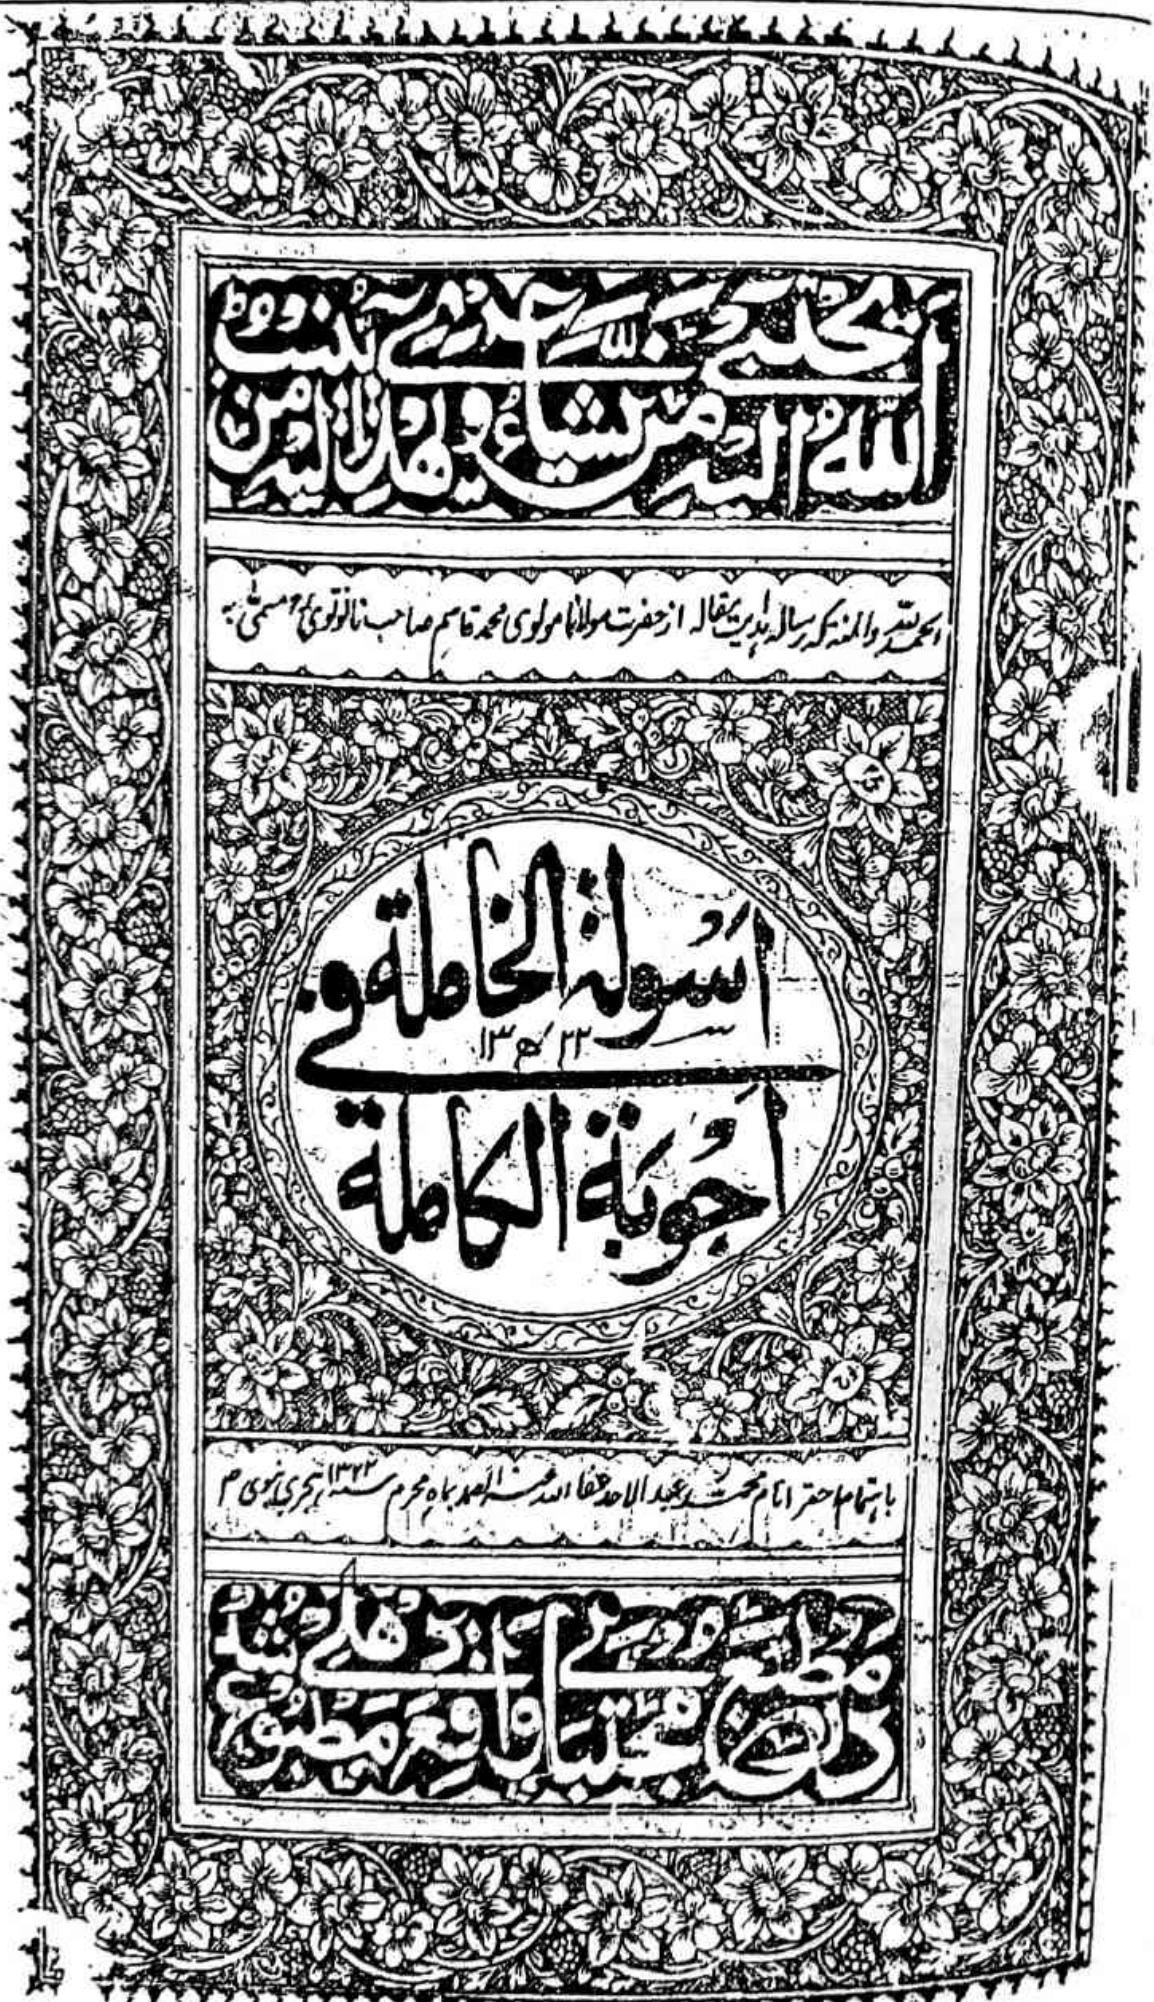 اَللّٰهُ يَجْتَبِي اِلَيْهِ مَنْ يَّشَاءُ وَيَهْدِي اِلَيْهِ مَنْ يُّنِيْبُ
الحمد للہ والمنہ کہ رسالہ ہدایت مقالہ از حضرت مولانا مولوی محمد قاسم صاحب نانوتوی رح مسمیٰ بہ
اَسْوِلَةُ الخاملة في
۱۳۲۲ھ
اَجْوِبَة الكاملة
باہتمام احقر انام محمد عبد الاحد عفا اللہ عنہ الصمد بماہ محرم سنہ ۱۳۲۲ ہجری نبوی م
در مطبع مجتبائی واقع دہلی مطبوع شد